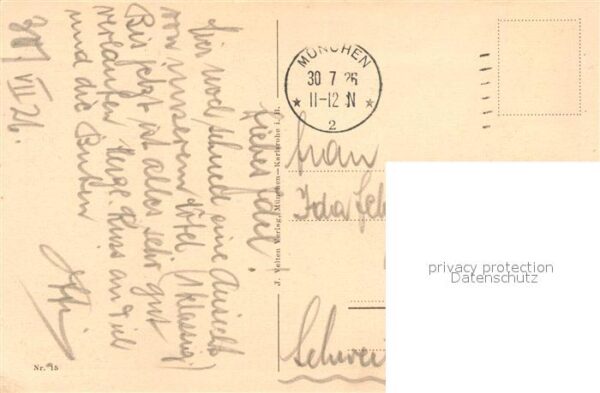 Liebes Idel!
Hier noch schnell eine Ansicht
von unserem Hotel (Klassig!)
Bis jetzt ist alles sehr gut
verlaufen. Herzl. Kuss an Euch
und die Buben
30. VII 26.
MÜNCHEN
30 7 26
11-12 N
2
J. Velten Verlag, München-Karlsruhe i. B.
Frau
Ida
Schwei
Nr. 15
privacy protection
Datenschutz